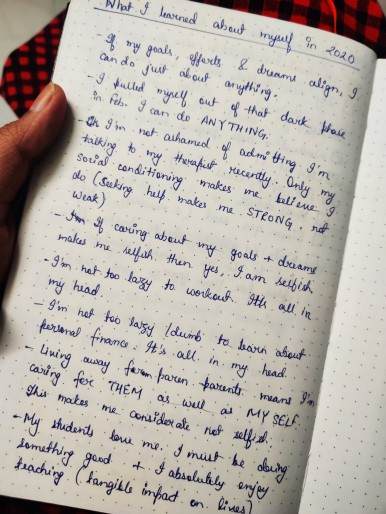 What I learned about myself in 2020
- If my goals, efforts & dreams align, I
can do just about anything.
- I pulled myself out of that dark phase
in Feb. I can do ANYTHING.
- I'm not ashamed of admitting I'm
talking to my therapist recently. Only my
social conditioning makes me believe I
do (Seeking help makes me STRONG, not
weak)
- If caring about my goals + dreams
makes me selfish then yes, I am selfish
- I'm not too lazy to workout. It's all in
my head.
- I'm not too lazy/dumb to learn about
personal finance. It's all in my head.
- Living away from parents means I'm
caring for THEM as well as MYSELF.
This makes me considerate not selfish.
- My students love me. I must be doing
something good + I absolutely enjoy
teaching (tangible impact on lives)